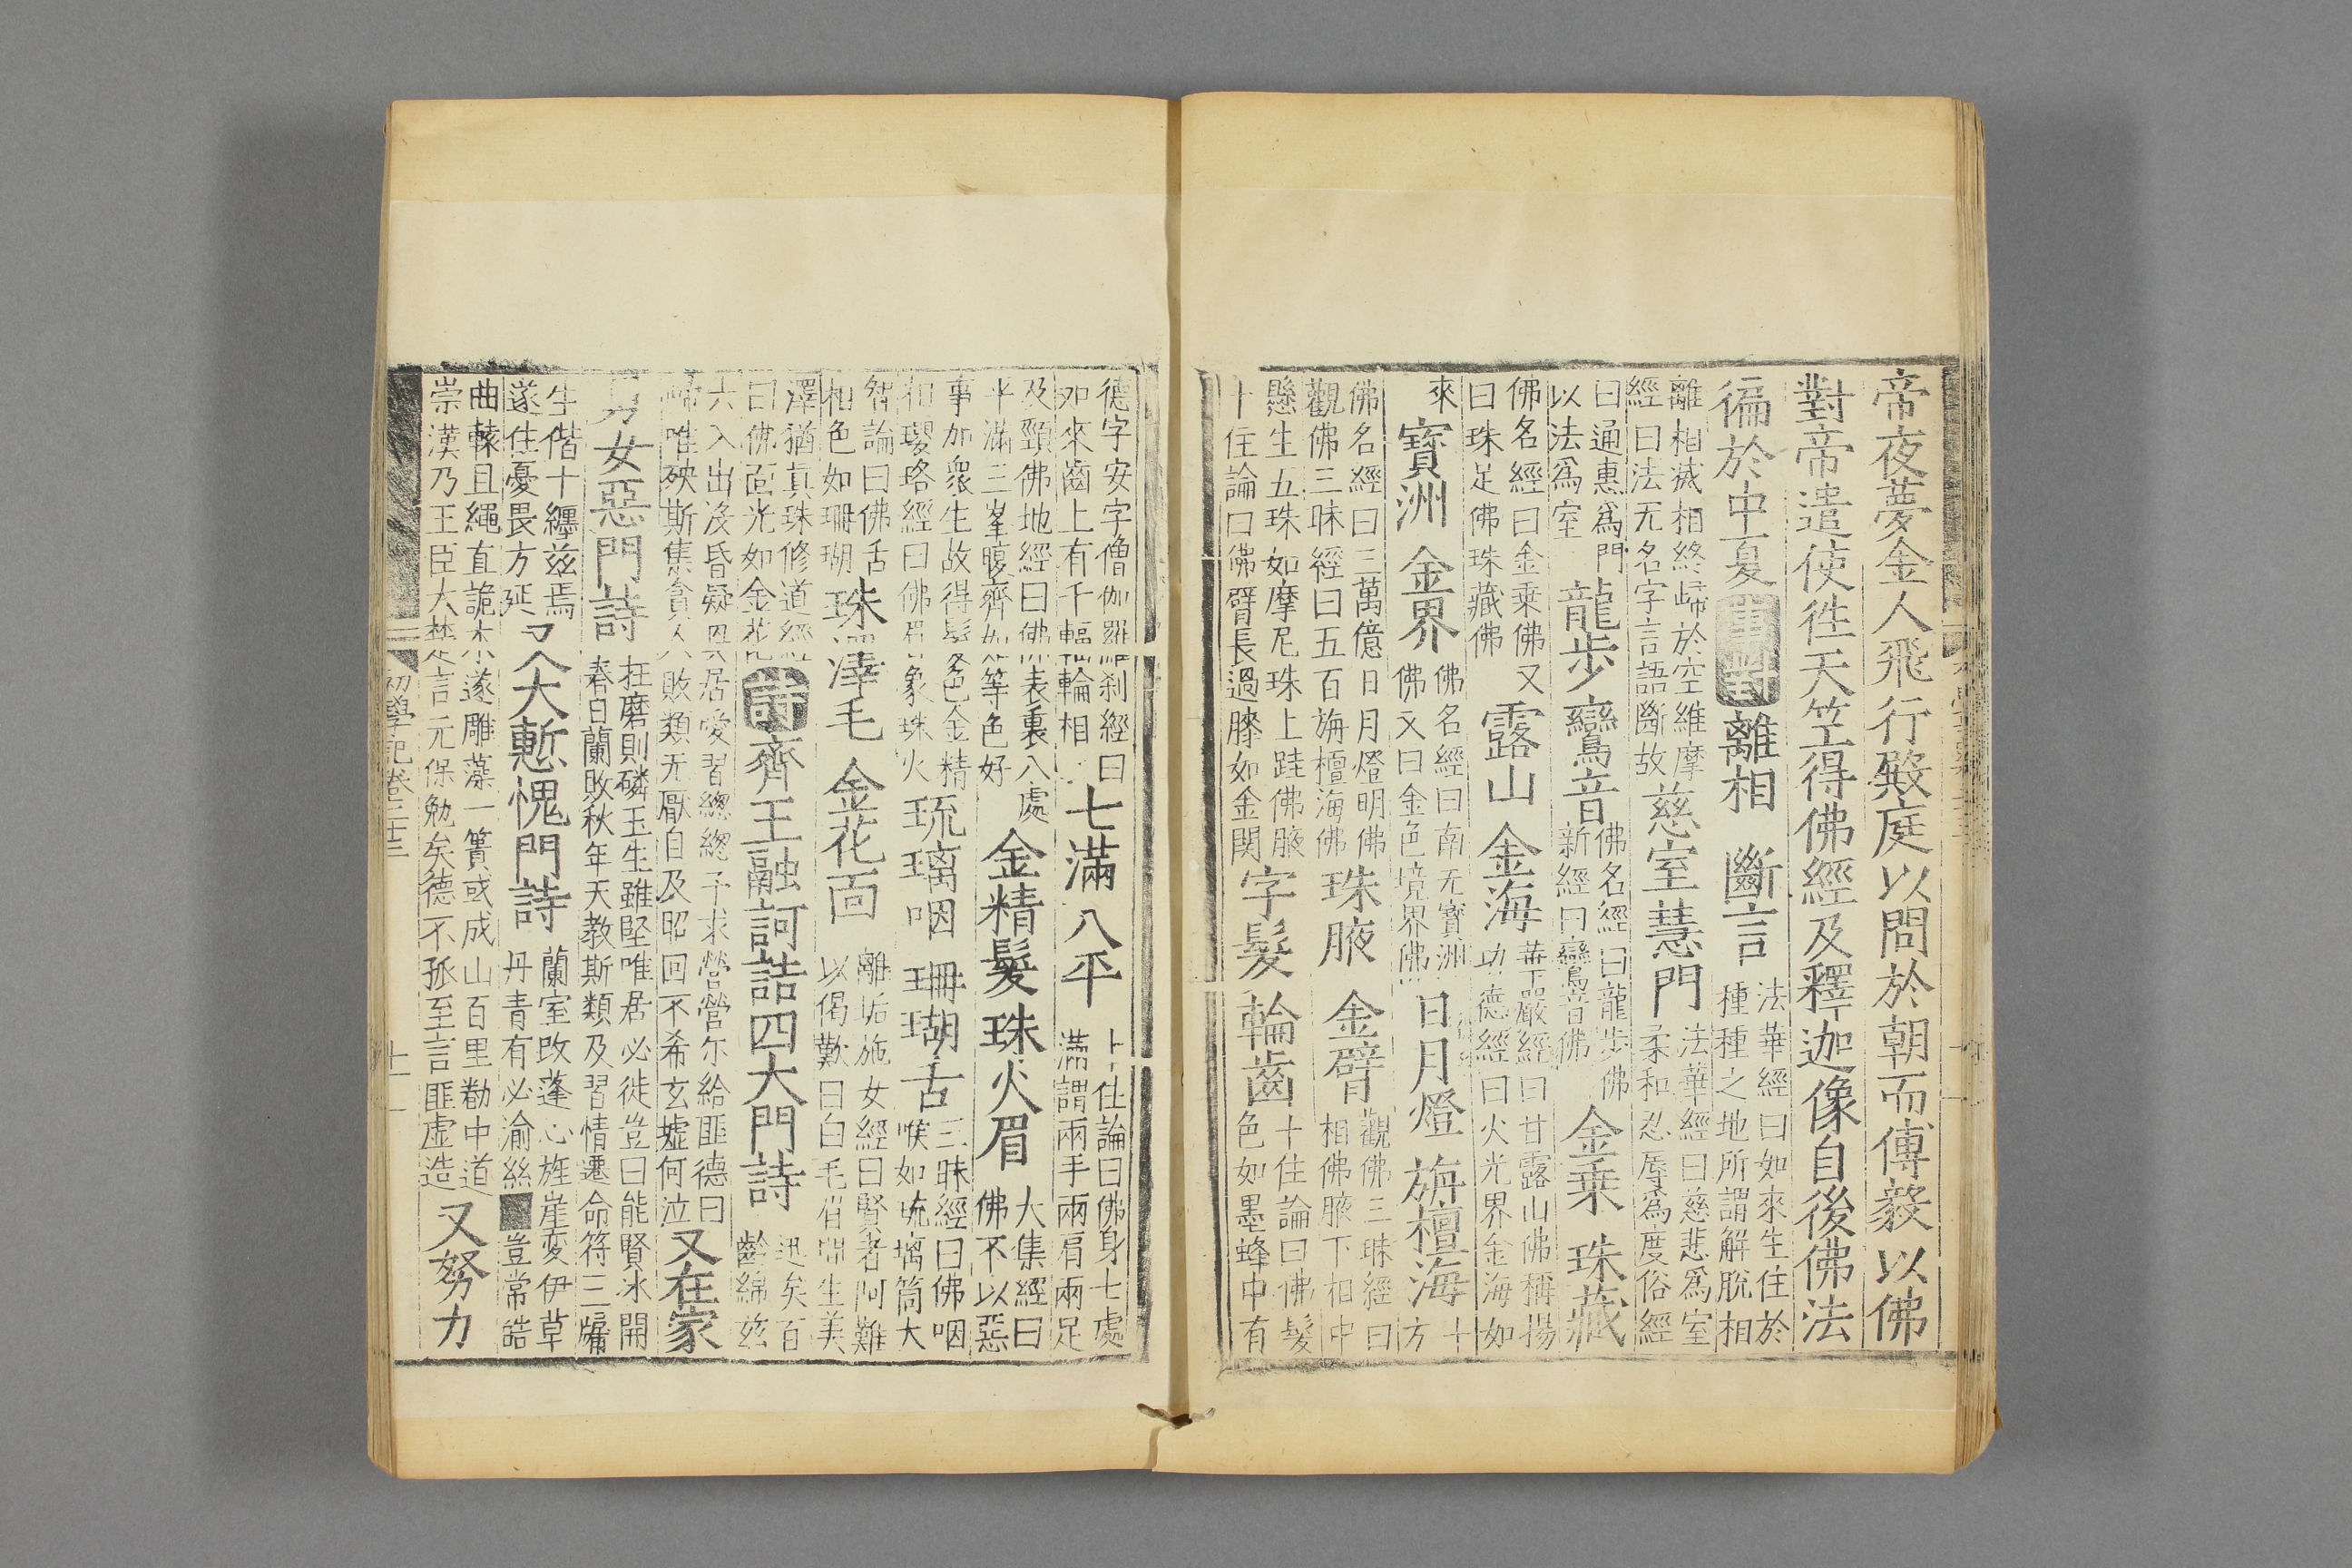 帝夜夢金人飛行殿庭以問於朝而傅毅以佛
對帝遣使徃天竺得佛經及釋迦像自後佛法
徧於中夏
事對
離相 斷言
法華經曰如來生住於
種種之地所謂解脫相
離相滅相終歸於空維摩
經曰法无名字言語斷故
慈室慧門
法華經曰慈悲爲室
柔和忍辱爲度俗經
曰通惠爲門
以法爲室
龍步 鸞音
佛名經曰龍步佛
新經曰鸞音佛
金乗 珠藏
佛名經曰金乗佛又
曰珠足佛珠藏佛
露山 金海
華嚴經曰甘露山佛稱揚
功德經曰火光界金海如
來
寳洲 金界
佛名經曰南无寳洲
佛又曰金色境界佛
日月燈 旃檀海
十
方
佛名經曰三萬億日月燈明佛
觀佛三昧經曰五百旃檀海佛
珠腋 金臂
觀佛三珠經曰
相佛腋下相中
懸生五珠如摩尼珠上跬佛腋
十住論曰佛臂長過膝如金関
字髮 輪齒
十住論曰佛髮
色如墨蜂中有
德字安字僧伽羅剎經曰
如來齒上有千輻輪相
七滿 八平
十住論曰佛身七處
滿謂兩手兩肩兩足
及頸佛地經曰佛表裏八處
平滿三峯㬉齊如等色好
金精髮 珠火眉
大集經曰
佛不以惡
事加衆生故得髮色金精
和瓔珞經曰佛眉象珠火
琉璃咽 珊瑚舌
三昧經曰佛咽
喉如琉璃筒大
智論曰佛舌
相色如珊瑚
珠澤毛 金花面
離垢施女經曰賢者阿難
以偈歎曰白毛眉間生美
澤猶真珠修道經
曰佛面光如金花
詩
齊王融訶詰四大門詩
迅矣百
齡綿兹
六入出沒昏疑興居愛習總總予求營營尒給匪德曰
歸唯殃斯集貪人敗類无厭自及昭回不希玄墟何泣
又在家
男女惡門詩
在磨則磷玉生雖堅唯居必徙豈曰能賢冰開
春日蘭敗秋年天教斯類及習情遷命符三牖
生偕十纏兹焉
遂住憂畏方延
又大慙愧門詩
蘭室改蓬心旌崖変伊草
丹青有必渝絲豈常皓
曲轅且繩直詭木遂雕藻一簣或成山百里勌中道
崇漢乃王臣大楚言元保勉矣德不孤至言匪虛造
又努力
初學記卷二十三
十一